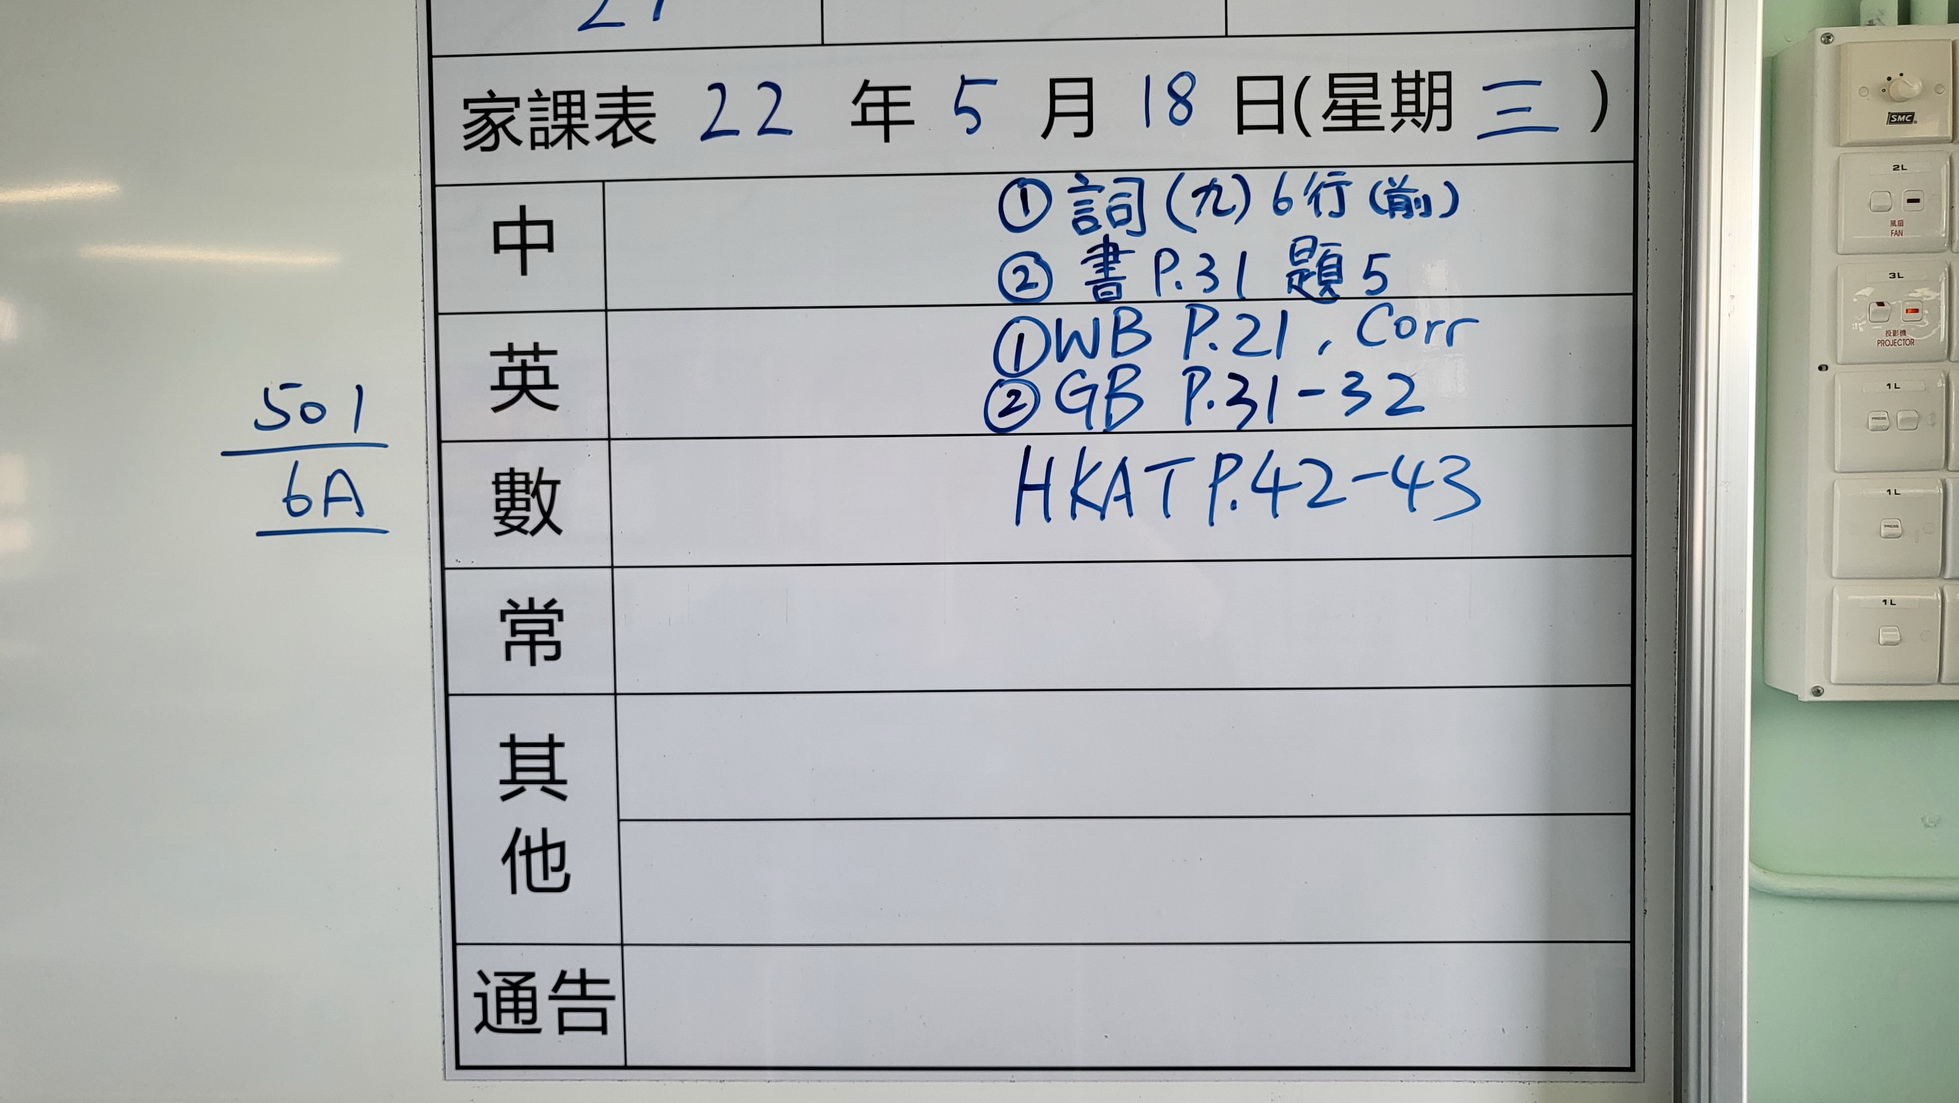 27
家課表 22 年 5 月 18 日(星期 三 )
中 ① 詞(九)6行(前)
② 書 P.31 題5
英 ①WB P.21, Corr
② GB P.31-32
數 HKAT P.42-43
常
其他
通告
501
6A
SMC
2L
風扇
FAN
3L
投影機
PROJECTOR
1L
PRESS
1L
PRESS
1L